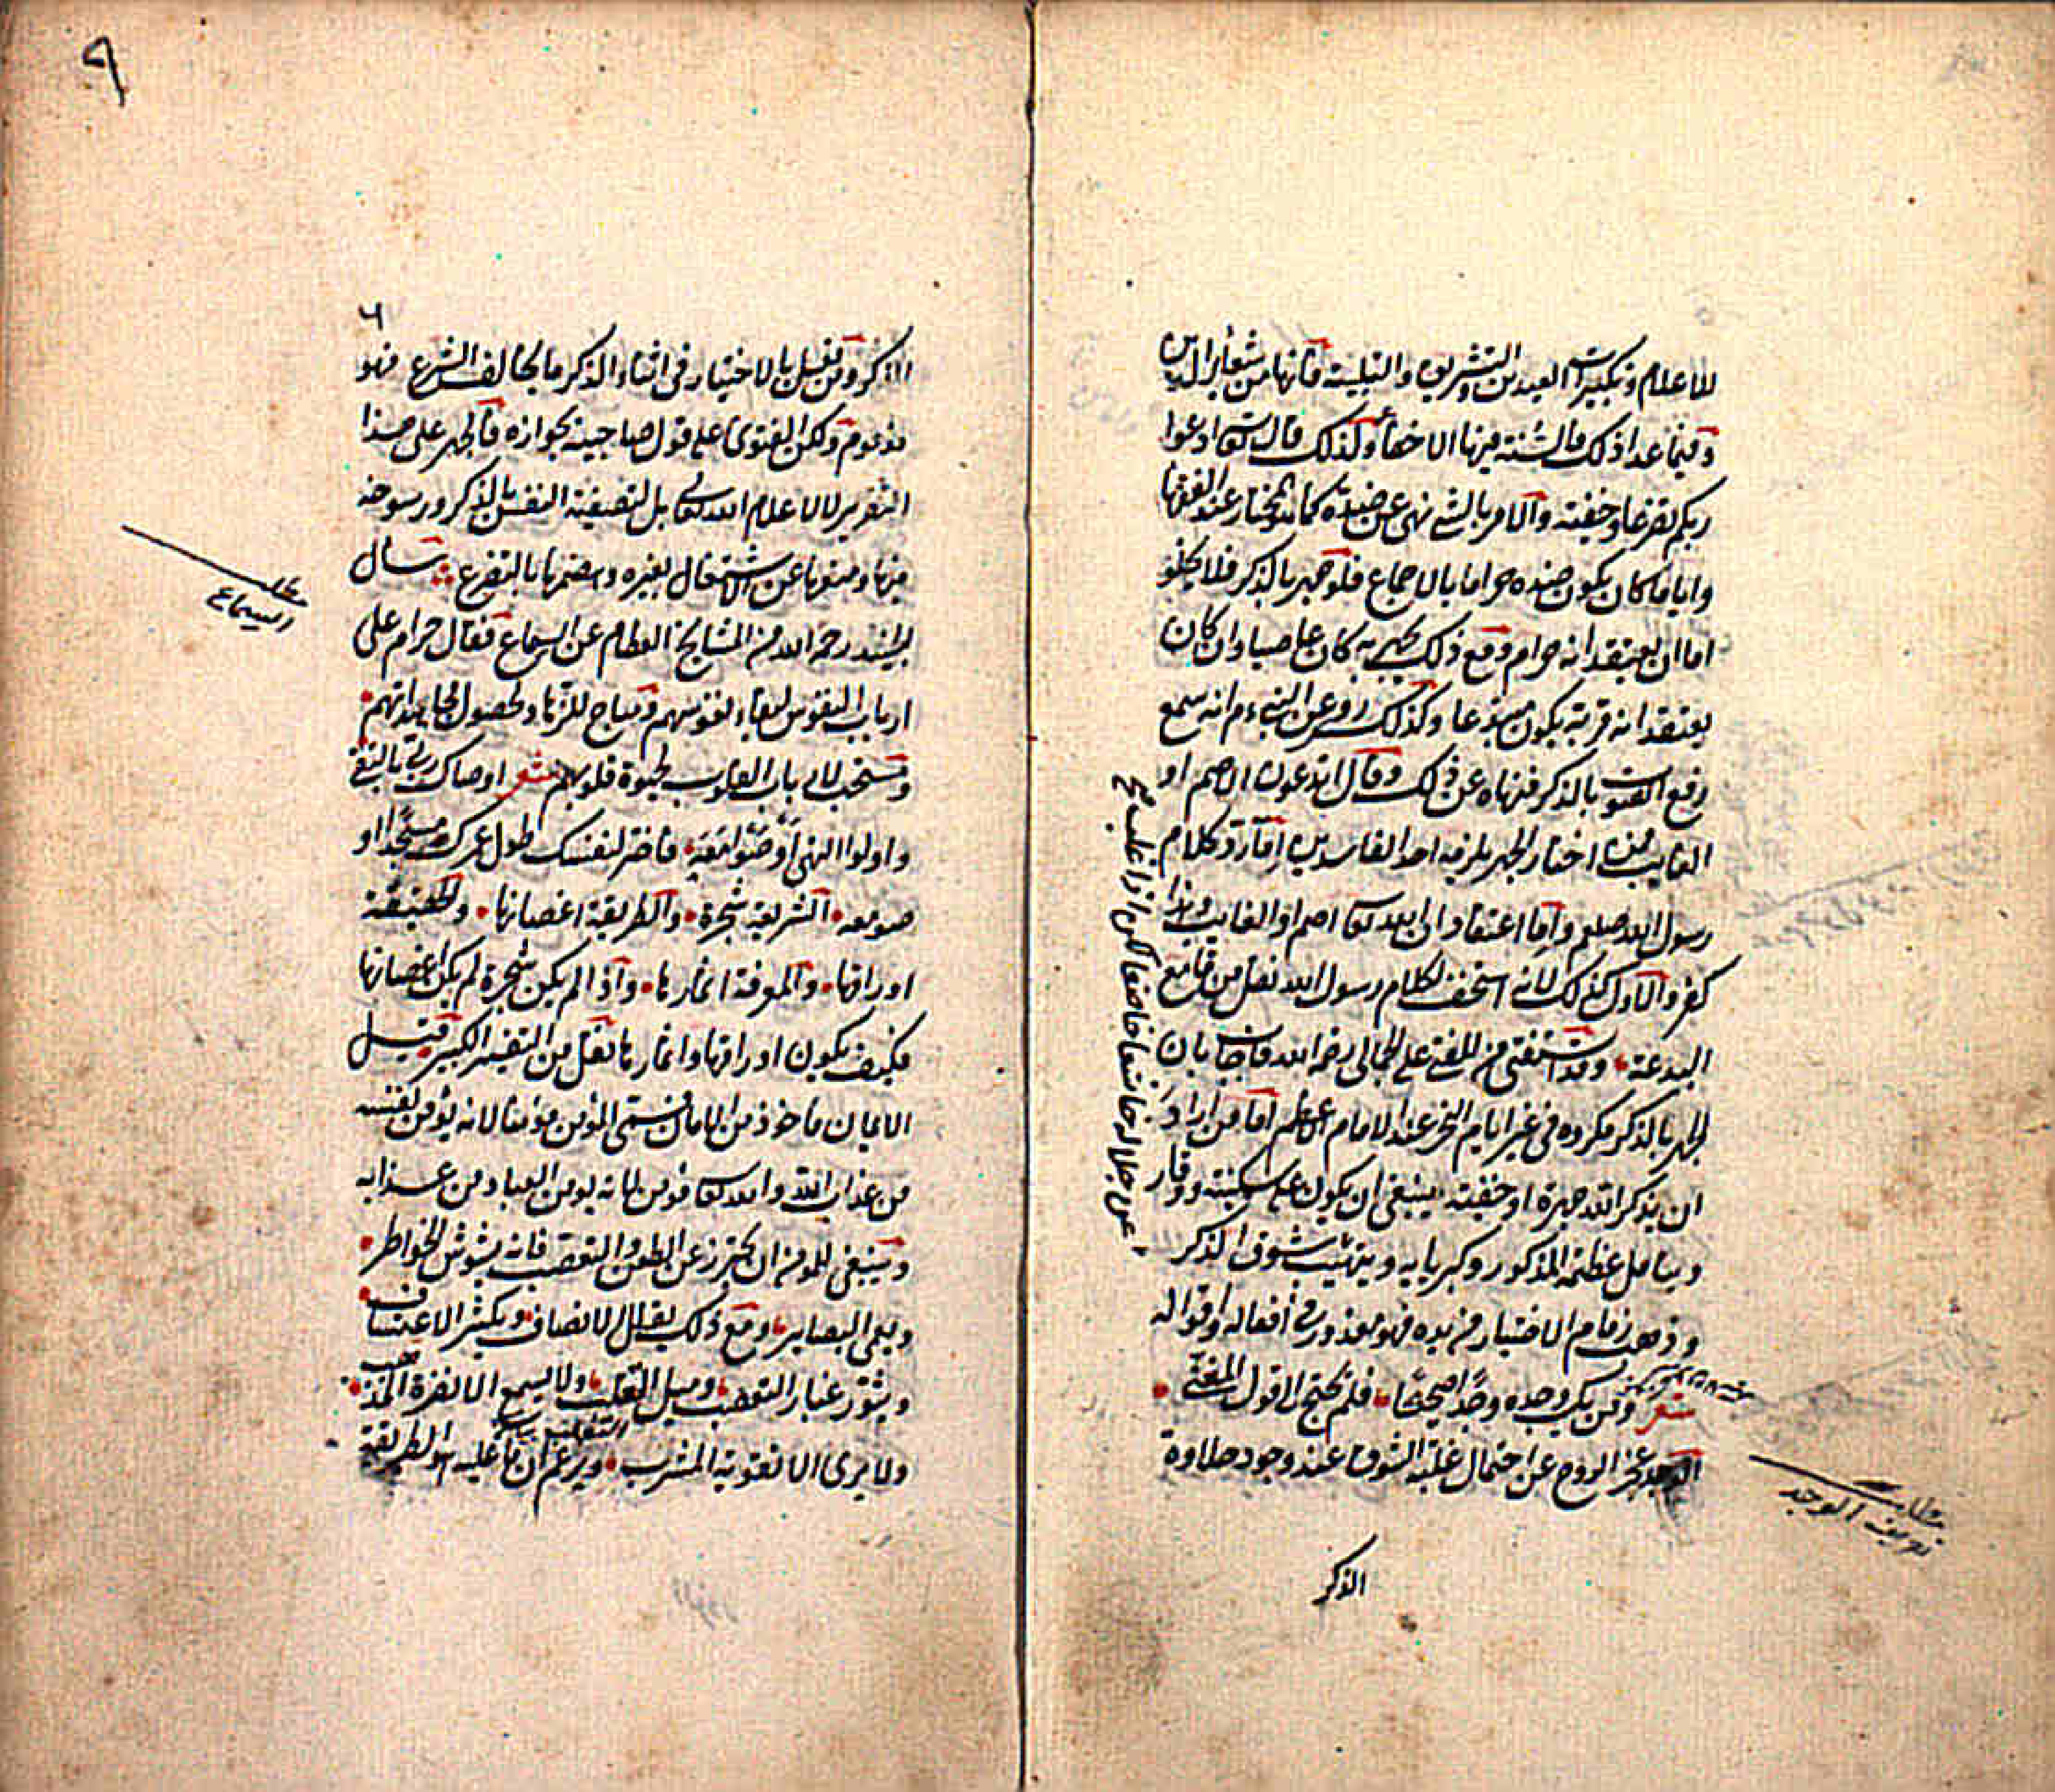 للاعلام وتكبيرات العيدين والتشريق والتلبية فانها من شعاير الدين
وفيما عدا ذلك فالسنة فيها الاخفاء وكذلك قال الله تعا ادعوا
ربكم تضرعا وخفية والامر بالشئ نهى عن ضده كما هو المختار عند الفقها
واياما كان يكون ضده حراما بالاجماع فلو جهر بالذكر فلا يخلو
اما ان يعتقد انه حرام ومع ذلك يجهر به كان عاصيا وان كان
يعتقد انه قربة يكون مبتدعا وكذلك روى عن النبي م انه سمع
رفع الصوت بالذكر فنهاه عن ذلك وقال اتدعون الاصم او
الغايب فمن اختار الجهر يلزمه احد الفاسدين اما رد كلام
رسول الله صلعم واما اعتقاد ان الله تعا اصم او الغايب وهذا
كفر والاول كذلك لانه استخف لكلام رسول الله نقل من قامع
البدعة وقد استفتى من المفتى على الجمالى رحمه الله فاجاب بان
الجهر بالذكر مكروه فى غير ايام النحر عند الامام الاعظم اما من اراد
ان يذكر الله جهرة او خفية ينبغى ان يكون على سكينة ووقار
ويتامل عظمة المذكور وكبريايه ويتهيب شوق الذكر
وذهب زمام الاختيار من يده فهو معذور فى افعاله واقواله
شعر ومن يك وجده وجدا صحيحا فلم يحتج الى قول المغنى
الوجد عجز الروح عن احتمال غلبة الشوق عند وجود حلاوة
الذكر
مطلب
تعريف الوجد
٩
٦
الذكر ومن يفعل بالاختيار فى اثناء الذكر ما يخالف الشرع فهو
مذموم ولكن الفتوى على قول صاحبيه بجوازه فالجهر على هذا
التقدير لا لاعلام الله تعالى بل لتصفية النفس بالذكر ورسوخه
فيها ومنعها عن الاشتغال بغيره وهضمها بالتضرع سال
الجنيد رحمه الله من المشايخ العظام عن السماع فقال حرام على
ارباب النفوس لبقاء نفوسهم ومباح للزهاد لحصول مجاهداتهم
ومستحب لارباب القلوب لحيوة قلوبهم شعر اوصاك ربي بالتقى
واولوا النهى اوصوا معه فاختر لنفسك طول عمرك مسجدا او
صومعه الشريعة شجرة والطريقة اغصانها والحقيقة
اوراقها والمعرفة اثمارها واذا لم يكن شجرة لم يكن اغصانها
فكيف يكون اوراقها واثمارها نقل من التفسير الكبير قيل
الايمان ماخوذ من الامان فسمى المؤمن مؤمنا لانه يؤمن نفسه
من عذاب الله والله تعا مؤمن لانه يومن العباد من عذابه
وينبغى للمؤمن ان يحترز عن الطعن والتعصب فانه يشوش الخواطر
ويعمى البصاير ومع ذلك يقلل الانصاف ويكثر الاعتساف
ويثور غبار التعصب وميل التقلب ولا يسمع الا لنصرة المذهب
ولا يرى الا تقوية المشرب ويزعم ان ما عليه هو الطريقة
مطلب
السماع